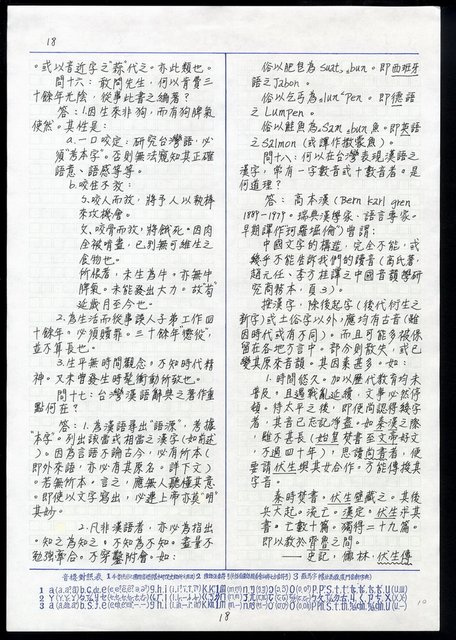 18
。或以音近字之"蒜"代之。亦此類也。
問十六:敢問先生,何以肯費三
十餘年光陰,從事此書之編著?
答:1.因生來非狗,而有狗脾氣
使然。其性是:
a.一口咬定:研究台灣語,必
須"考本字"。否則無法窺知其正確
語意、語感等等。
b.咬住不放:
ㄅ.咬人而放,將予人以執棒
來攻機會。
ㄆ.咬骨而放,將餓死。因肉
全被啃盡,已别無可維生之
食物也。
所憾者,未生為牛,亦無牛
脾氣。未能發出大力。故苟
延歲月至今也。
2.為生活而從事誤人子弟工作四
十餘年。必須贖罪。三十餘年懲役,
並不算長也。
3.生平無時間觀念,不知時代精
神。又未曾發生時髦衝動所致也。
問十七:台灣漢語辭典之著作重
點何在?
答:1.為漢語尋出"語源",考據
"本字"。列出該當或相當之漢字(如前述)
。因為言語不論古今,必有所本(
即外來語,亦必有其原名。詳下文)
。若無所本,言之,應無人聽懂其意
。即使以文字寫出,必連上帝亦莫"明"
其妙。
2.凡非漢語者,亦必為指出
。知之為知之。不知為不知。盡量不
勉強牽合。不穿鑿附會。如:
俗以肥皂為 buat。即西班牙
語之Jabon。
俗以乞丐為 Pen。即德
語之 Lumpen。
俗以鮭魚為 魚。即英
語之Salmon(或譯作撒蒙魚)。
問十八:何以在台灣表現漢語之
漢字,常有一字數音或十數音者。是
何道理?
答:高本漢(Bern karl gren
1889-1979。瑞典漢學家、語言學家。
早期譯作珂羅堀倫)曾謂:
中國文字的構造,完全不能,或
幾乎不能告訴我們的讀音(高氏著,
趙元任、李方桂譯之中國音韻學研
究商務本,頁3)。
按漢字,除後起字(後代衍生之
新字)或土俗字以外,應均有古音(雖
因時代或有不同)。而且可能多被保
留在各地方言中。部分則散失,或已
變其原來音韻。其因素甚多。如:
1.時間悠久。加以歷代教育均未
普及。且遇戰亂延續,文事必然停
頓。待太平之後,即使尚認得幾字
者,其音已忘記淨盡。如秦漢之際
,雖不甚長(始皇焚書至文帝好文
,不過四十年),思讀尚書者,便
要請伏生與其女合作。方能傳授其
字音。
秦時焚書,伏生壁藏之。其後
兵大起。流亡。漢定,伏生求其
書。亡數十篇,獨得二十九篇。
即以教於齊魯之間。
——史記,儒林,伏生傳
音標對照表
18